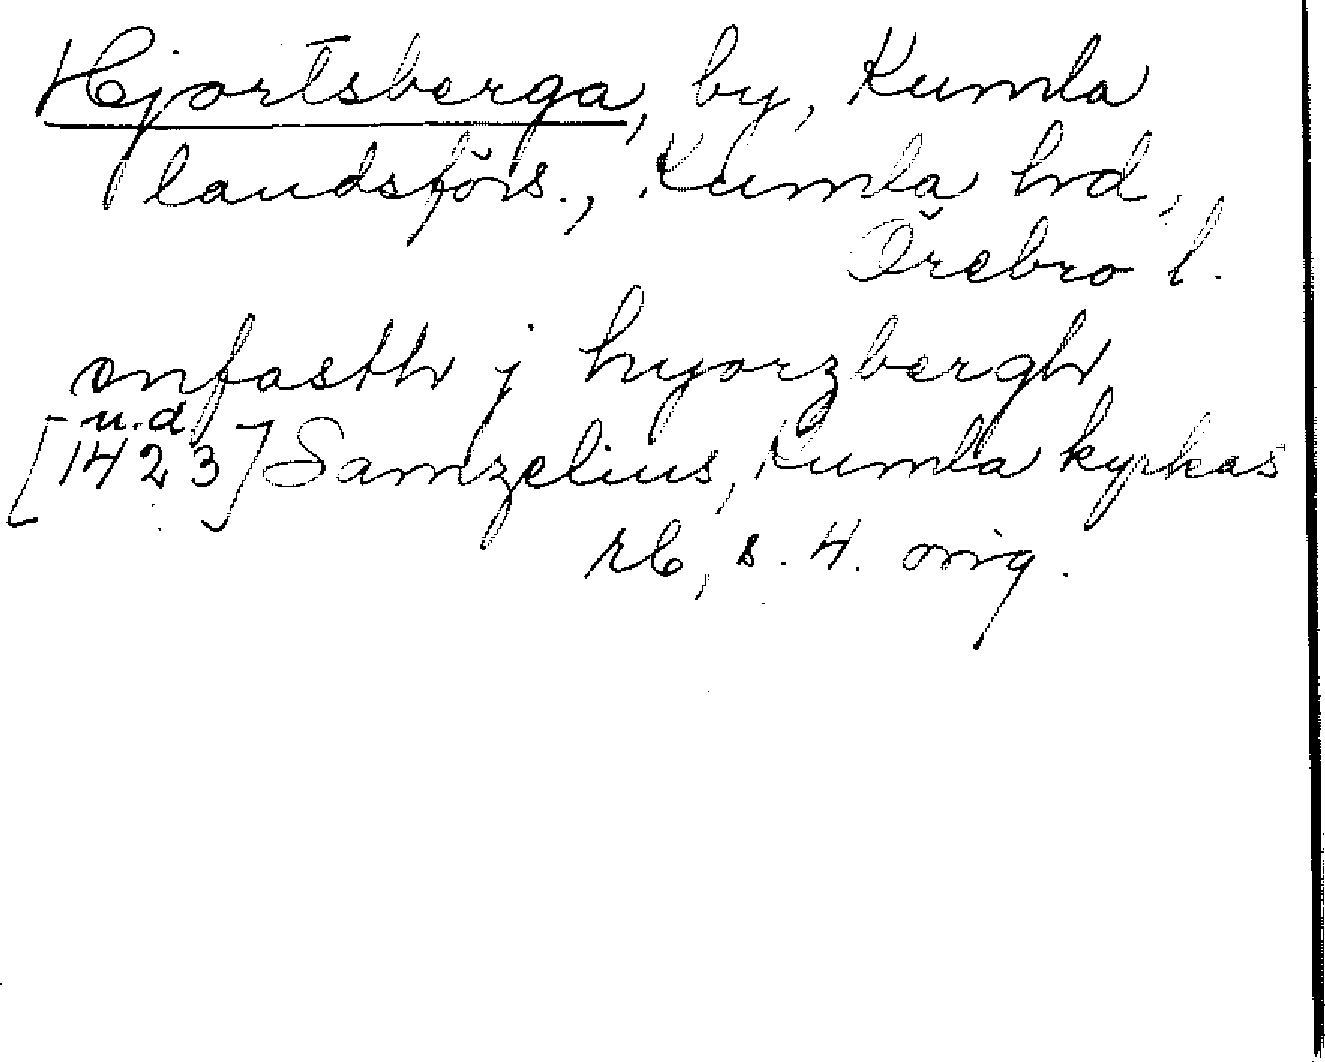 Hjortsberga, by, Kumla
landsförs., Kumla hd,
Örebro l.
onfasth j hyorzbergh
u.d
[1423] Samzelius, Kumla kyrkas
rb, s. 4. orig.